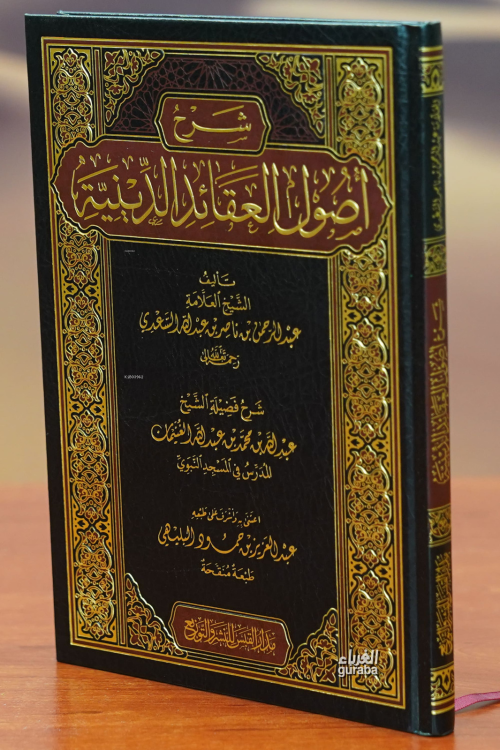 شرح
أصول العقائد الدينية
تأليف
الشيخ العلامة
عبد الرحمن بن ناصر بن عبد الله السعدي
رحمه الله تعالى
شرح فضيلة الشيخ
عبد الله بن محمد بن عبد الله الغنيمان
المدرس في المسجد النبوي
اعتنى به وأشرف على طبعه
عبد العزيز بن حمود البليهي
طبعة منقحة
مدار القبس للنشر والتوزيع
الغرباء
guraba